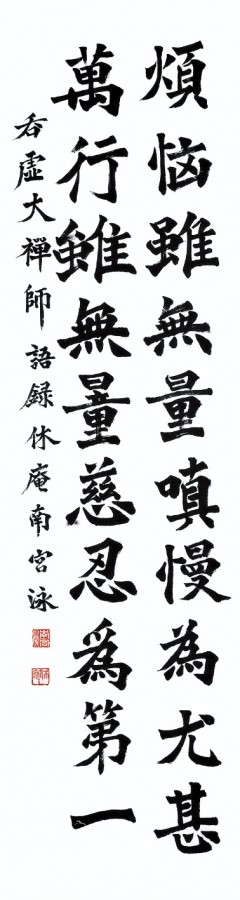 煩惱雖無量嗔慢為尤甚
萬行雖無量慈忍爲第一
吞虛大禪師語録休庵南宮泳